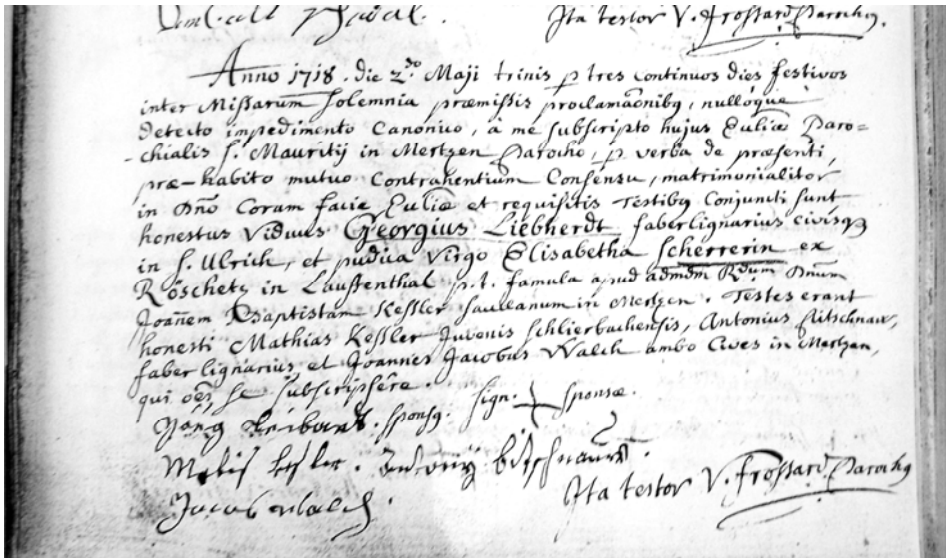 Ita testor V. Frossard Parochq
Anno 1718. die 2.do Maji trinis p tres continuos dies festivos
inter Missarum solemnia præmissis proclamaõnibq, nullóque
detecto impedimento Canonico, à me subscripto hujus Ecliæ Paro=
-chialis S. Mauritij in Mertzen Parocho, p verba de præsenti,
præ-habito mutuo Contrahentium Consensu, matrimonialiter
in Dño Coram facie Ecliæ et requisitis Testibq Conjuncti sunt
honestus Viduus Georgius Liebherdt faber lignarius civisq
in S. Ulrich, et pudica Virgo Elisabetha Scherrerin ex
Röschetz in Lauffenthal p.t. famula apud admdm Rdum Dnum
Joañem Baptistam Kessler in Mertzen. Testes erant
honesti Mathias Kessler Juvenis Schlierbachensis, Antonius
faber lignarius, et Joannes Jacobus Walch ambo Cives in Mertzen,
qui oẽs se subscripsêre.
sponsq. sign. + sponsæ.
Matis Kesler. Antoni bitschnauw.
Jacob Walch
Ita testor V. Frossard Parochq